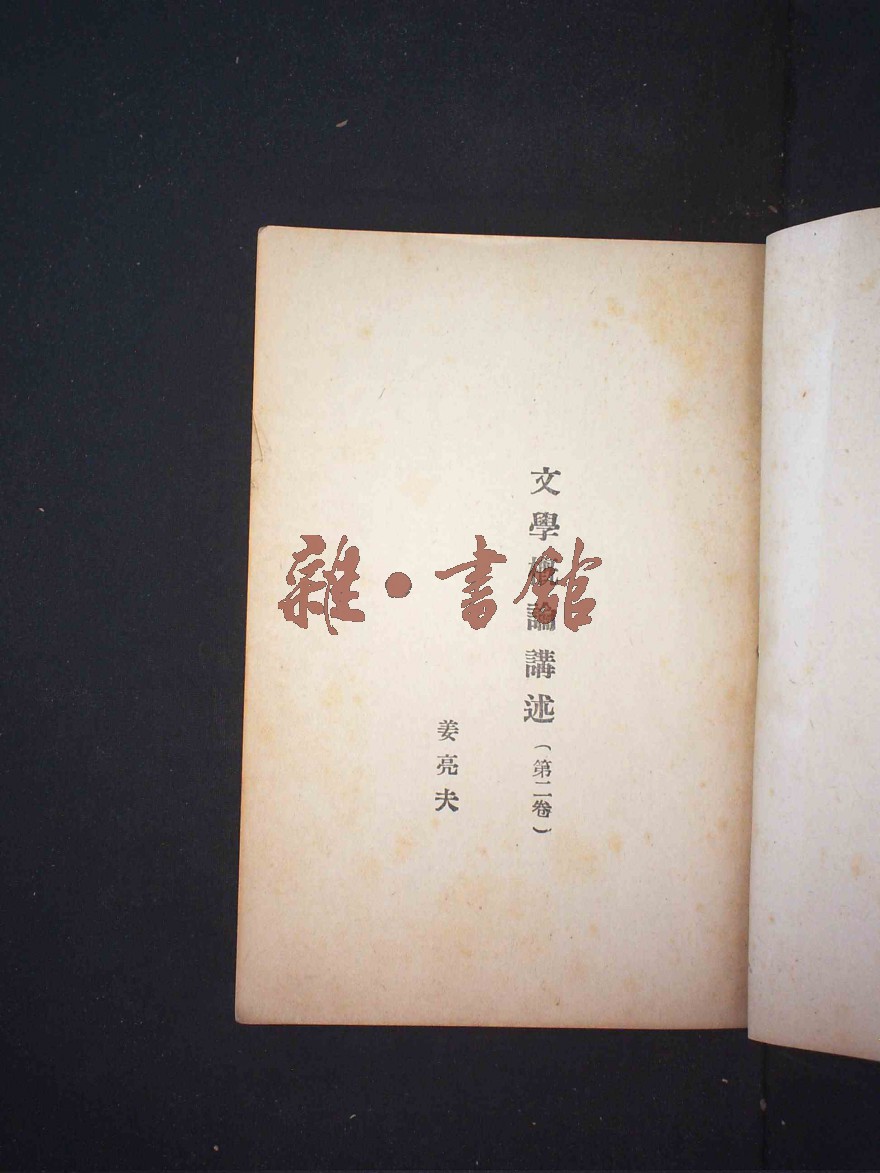 文學概論講述（第二卷）
姜亮夫
雜·書館